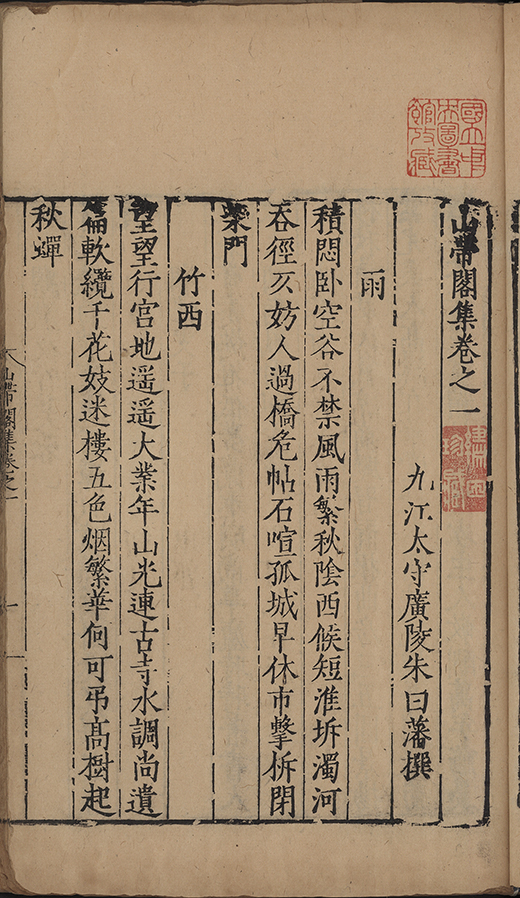 國立中
央圖書
館收藏
山帶閣集卷之一
珍藏
九江太守廣陵朱曰藩撰
雨
積悶臥空谷不禁風雨繁秋陰西候短淮坼濁河
吞徑仄妨人過橋危帖石喧孤城早休市擊柝閉
柴門
竹西
望望行宮地遥遥大業年山光連古寺水調尚遺
軟纜千花妓迷樓五色烟繁華何可弔高樹起
秋蟬
山帶閣集卷之一
一